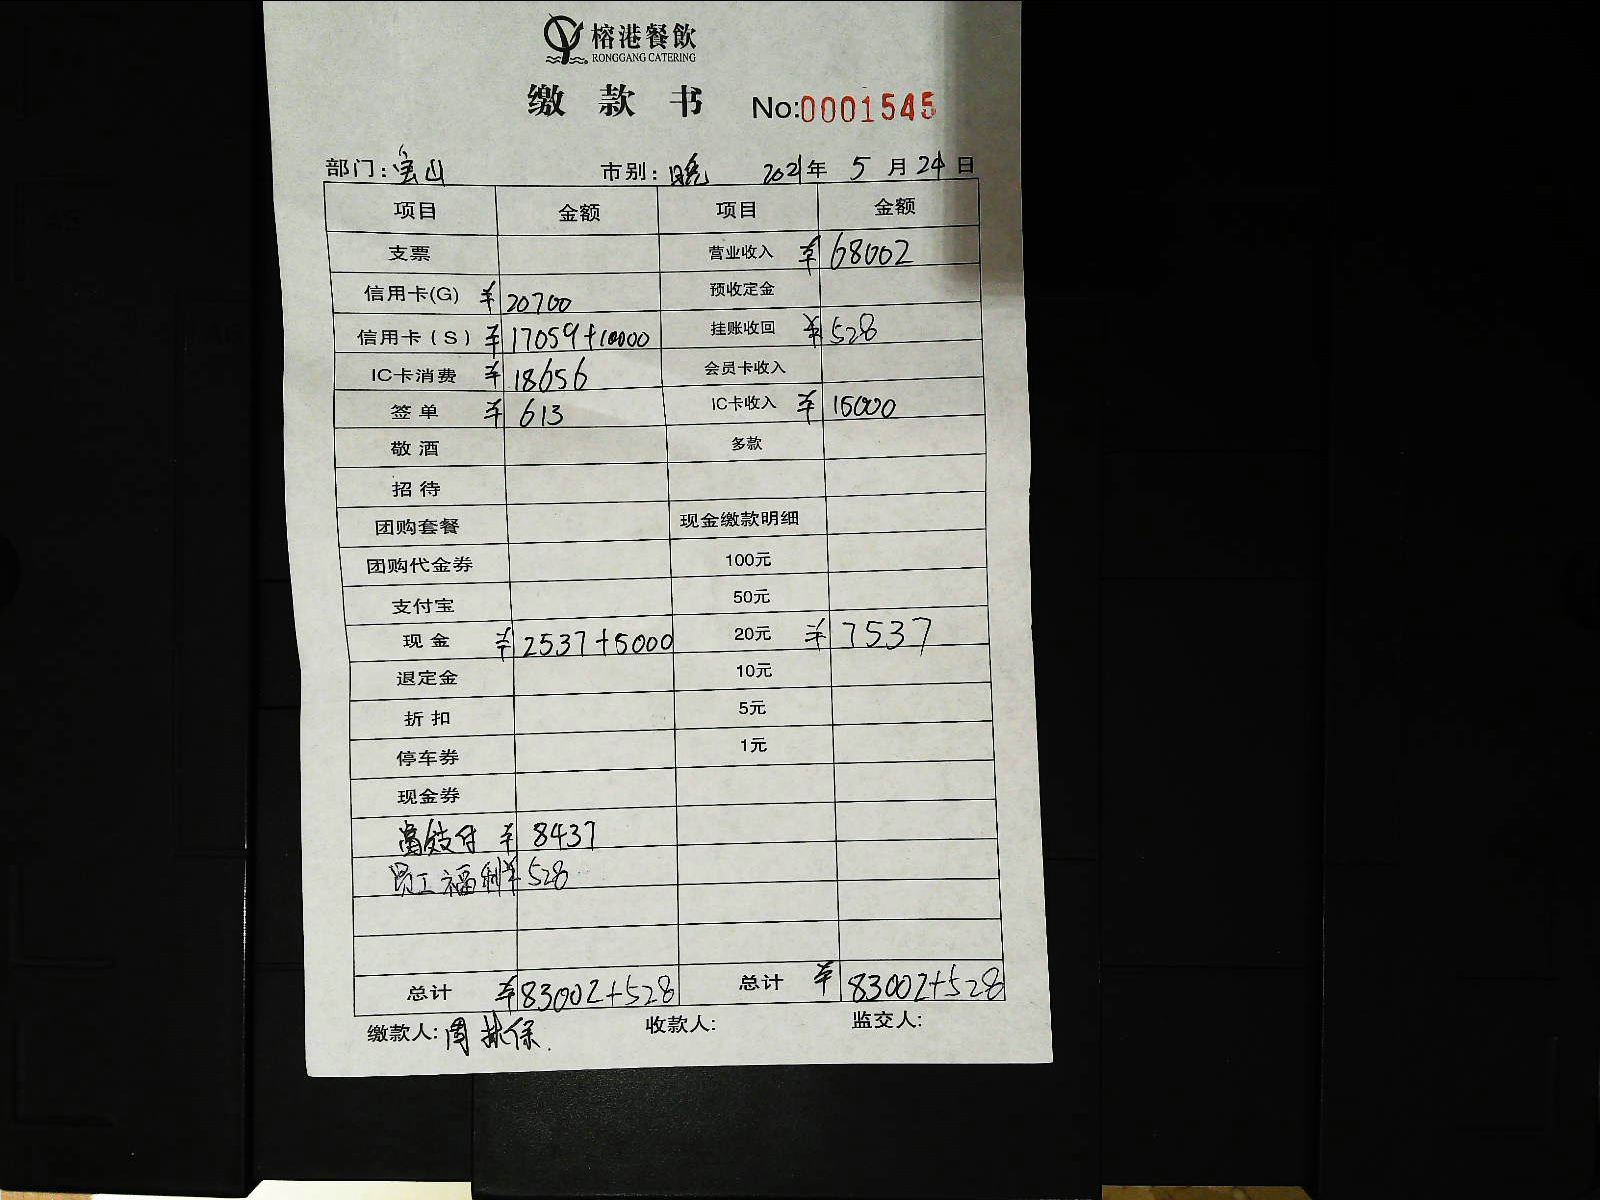 榕港餐飲
RONGGANG CATERING
缴款书 No:0001545
部门:宝山 市别:晚 2021年 5月24日
项目 金额 项目 金额
支票 营业收入 ¥68002
信用卡(G) ¥20700 预收定金
信用卡(S) ¥17059+10000 挂账收回 ¥528
IC卡消费 ¥18656 会员卡收入
签单 ¥613 IC卡收入 ¥15000
敬酒 多款
招待
团购套餐 现金缴款明细
团购代金券 100元
支付宝 50元
现金 ¥2537+5000 20元 ¥7537
退定金 10元
折扣 5元
停车券 1元
现金券
支付 ¥8437
员工福利¥528
总计 ¥83002+528 总计 ¥83002+528
缴款人:周 保 收款人: 监交人: